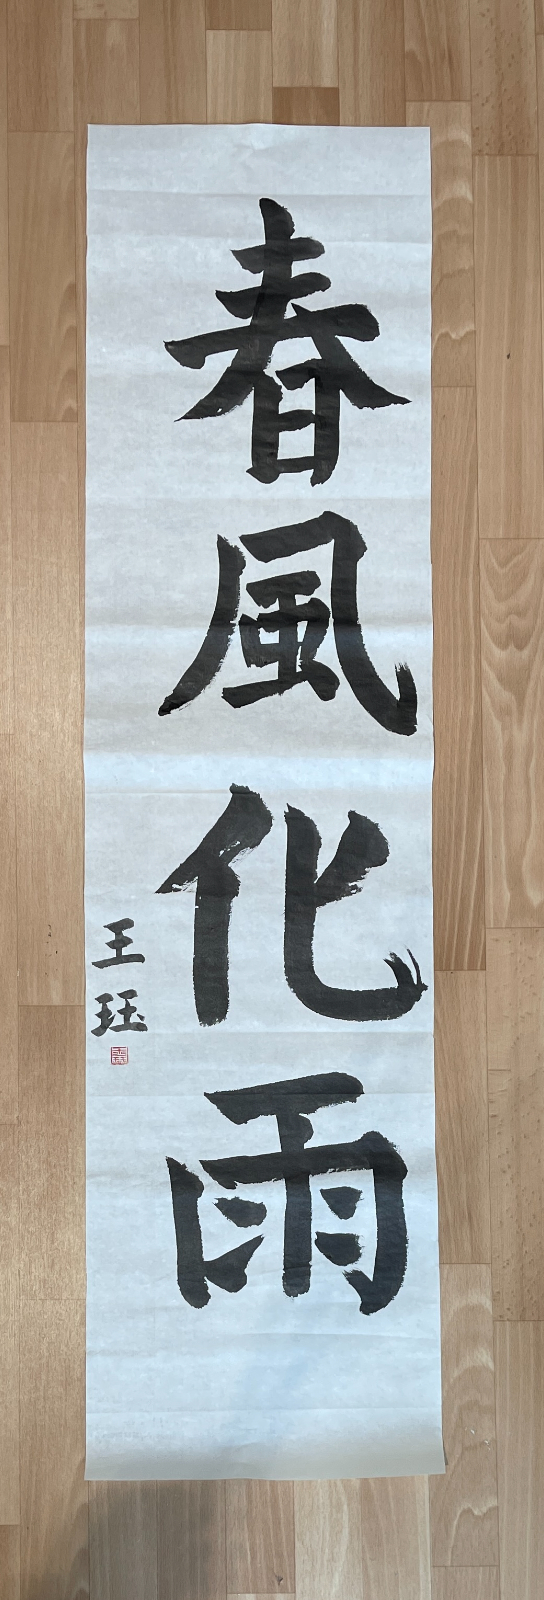 春風化雨
王珏